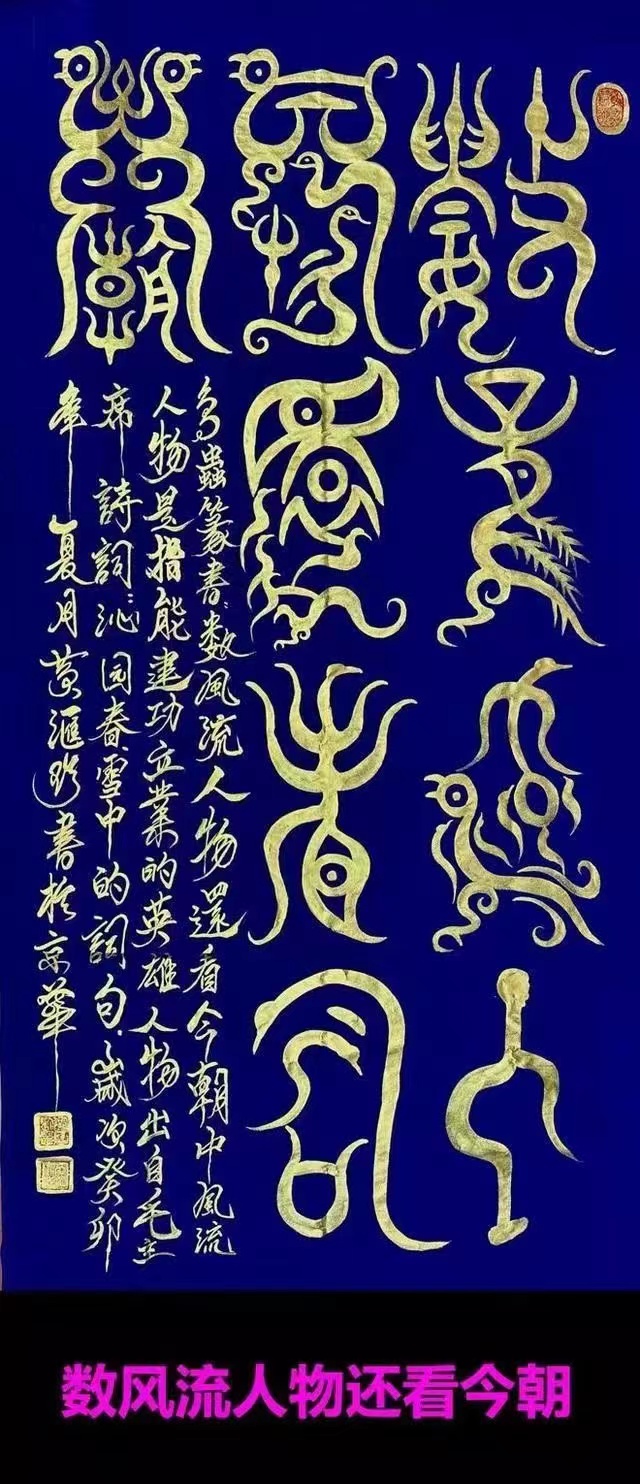 數風流人
物還看今
朝
鸟蟲篆書：数風流人物還看今朝中風流
人物是指能建功立業的英雄人物出自毛主
席詩詞：沁园春雪中的詞句，歲次癸卯
年夏月黄滙書於京華
数风流人物还看今朝